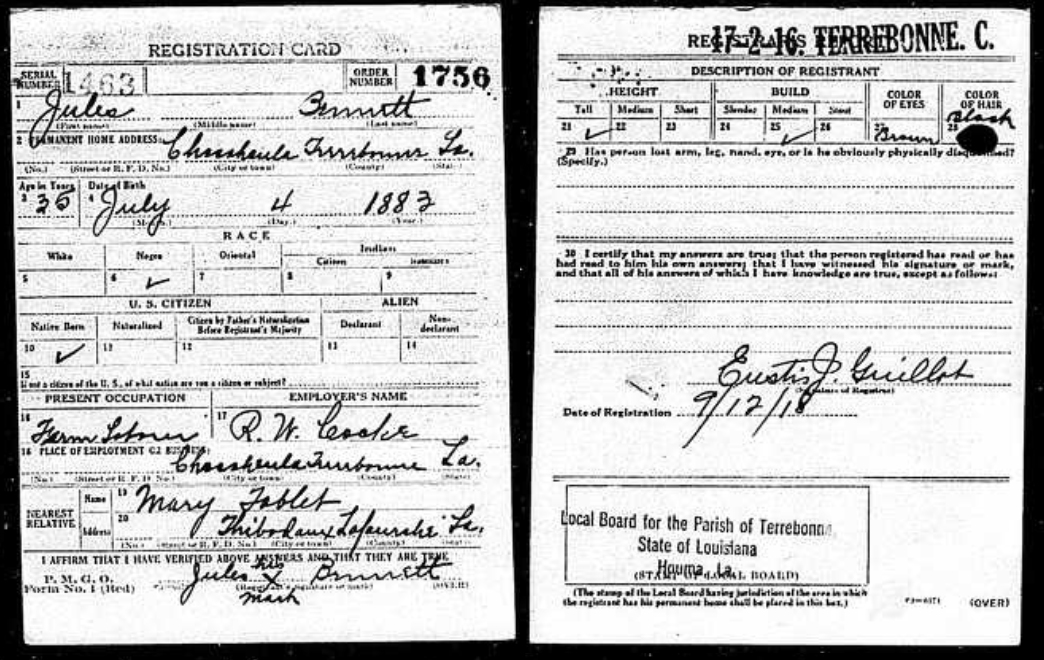 REGISTRATION CARD
SERIAL NUMBER 1463
ORDER NUMBER 1756
1 Jules Bennett
(First name) (Middle name) (Last name)
2 PERMANENT HOME ADDRESS: Terrebonne La.
(No.) (Street or R. F. D. No.) (City or town) (County) (State)
Age in Years Date of Birth
3 35 4 July 4 1883
(Month.) (Day.) (Year.)
RACE
White Negro Oriental Indian
Citizen Noncitizen
5 6 ✓ 7 8 9
U. S. CITIZEN ALIEN
Native Born Naturalized Citizen by Father's Naturalization Before Registrant's Majority Declarant Non-declarant
10 ✓ 11 12 13 14
15
If not a citizen of the U. S., of what nation are you a citizen or subject?
PRESENT OCCUPATION EMPLOYER'S NAME
16 Farm Laborer 17 R. W. Cocke
18 PLACE OF EMPLOYMENT OR BUSINESS:
Terrebonne La.
(No.) (Street or R. F. D. No.) (City or town) (County) (State)
NEAREST RELATIVE
Name 19 Mary
Address 20 Thibodaux Lafourche La.
(No.) (Street or R. F. D. No.) (City or town) (County) (State)
I AFFIRM THAT I HAVE VERIFIED ABOVE ANSWERS AND THAT THEY ARE TRUE
P. M. G. O.
Form No. 1 (Red)
Jules his X mark Bennett
(Registrant's signature or mark) (OVER)
17-2-16. TERREBONNE. C.
REGISTRAR'S REPORT
DESCRIPTION OF REGISTRANT
HEIGHT BUILD COLOR OF EYES COLOR OF HAIR
Tall Medium Short Slender Medium Stout
21 ✓ 22 23 24 25 ✓ 26 27 Brown 28 Black
29 Has person lost arm, leg, hand, eye, or is he obviously physically disqualified?
(Specify.)
30 I certify that my answers are true; that the person registered has read or has
had read to him his own answers; that I have witnessed his signature or mark,
and that all of his answers of which I have knowledge are true, except as follows:
Eustis J. Guillot
(Signature of Registrar)
Date of Registration 9/12/18
Local Board for the Parish of Terrebonne,
State of Louisiana
Houma, La.
(STAMP OF LOCAL BOARD)
(The stamp of the Local Board having jurisdiction of the area in which
the registrant has his permanent home shall be placed in this box.)
(OVER)